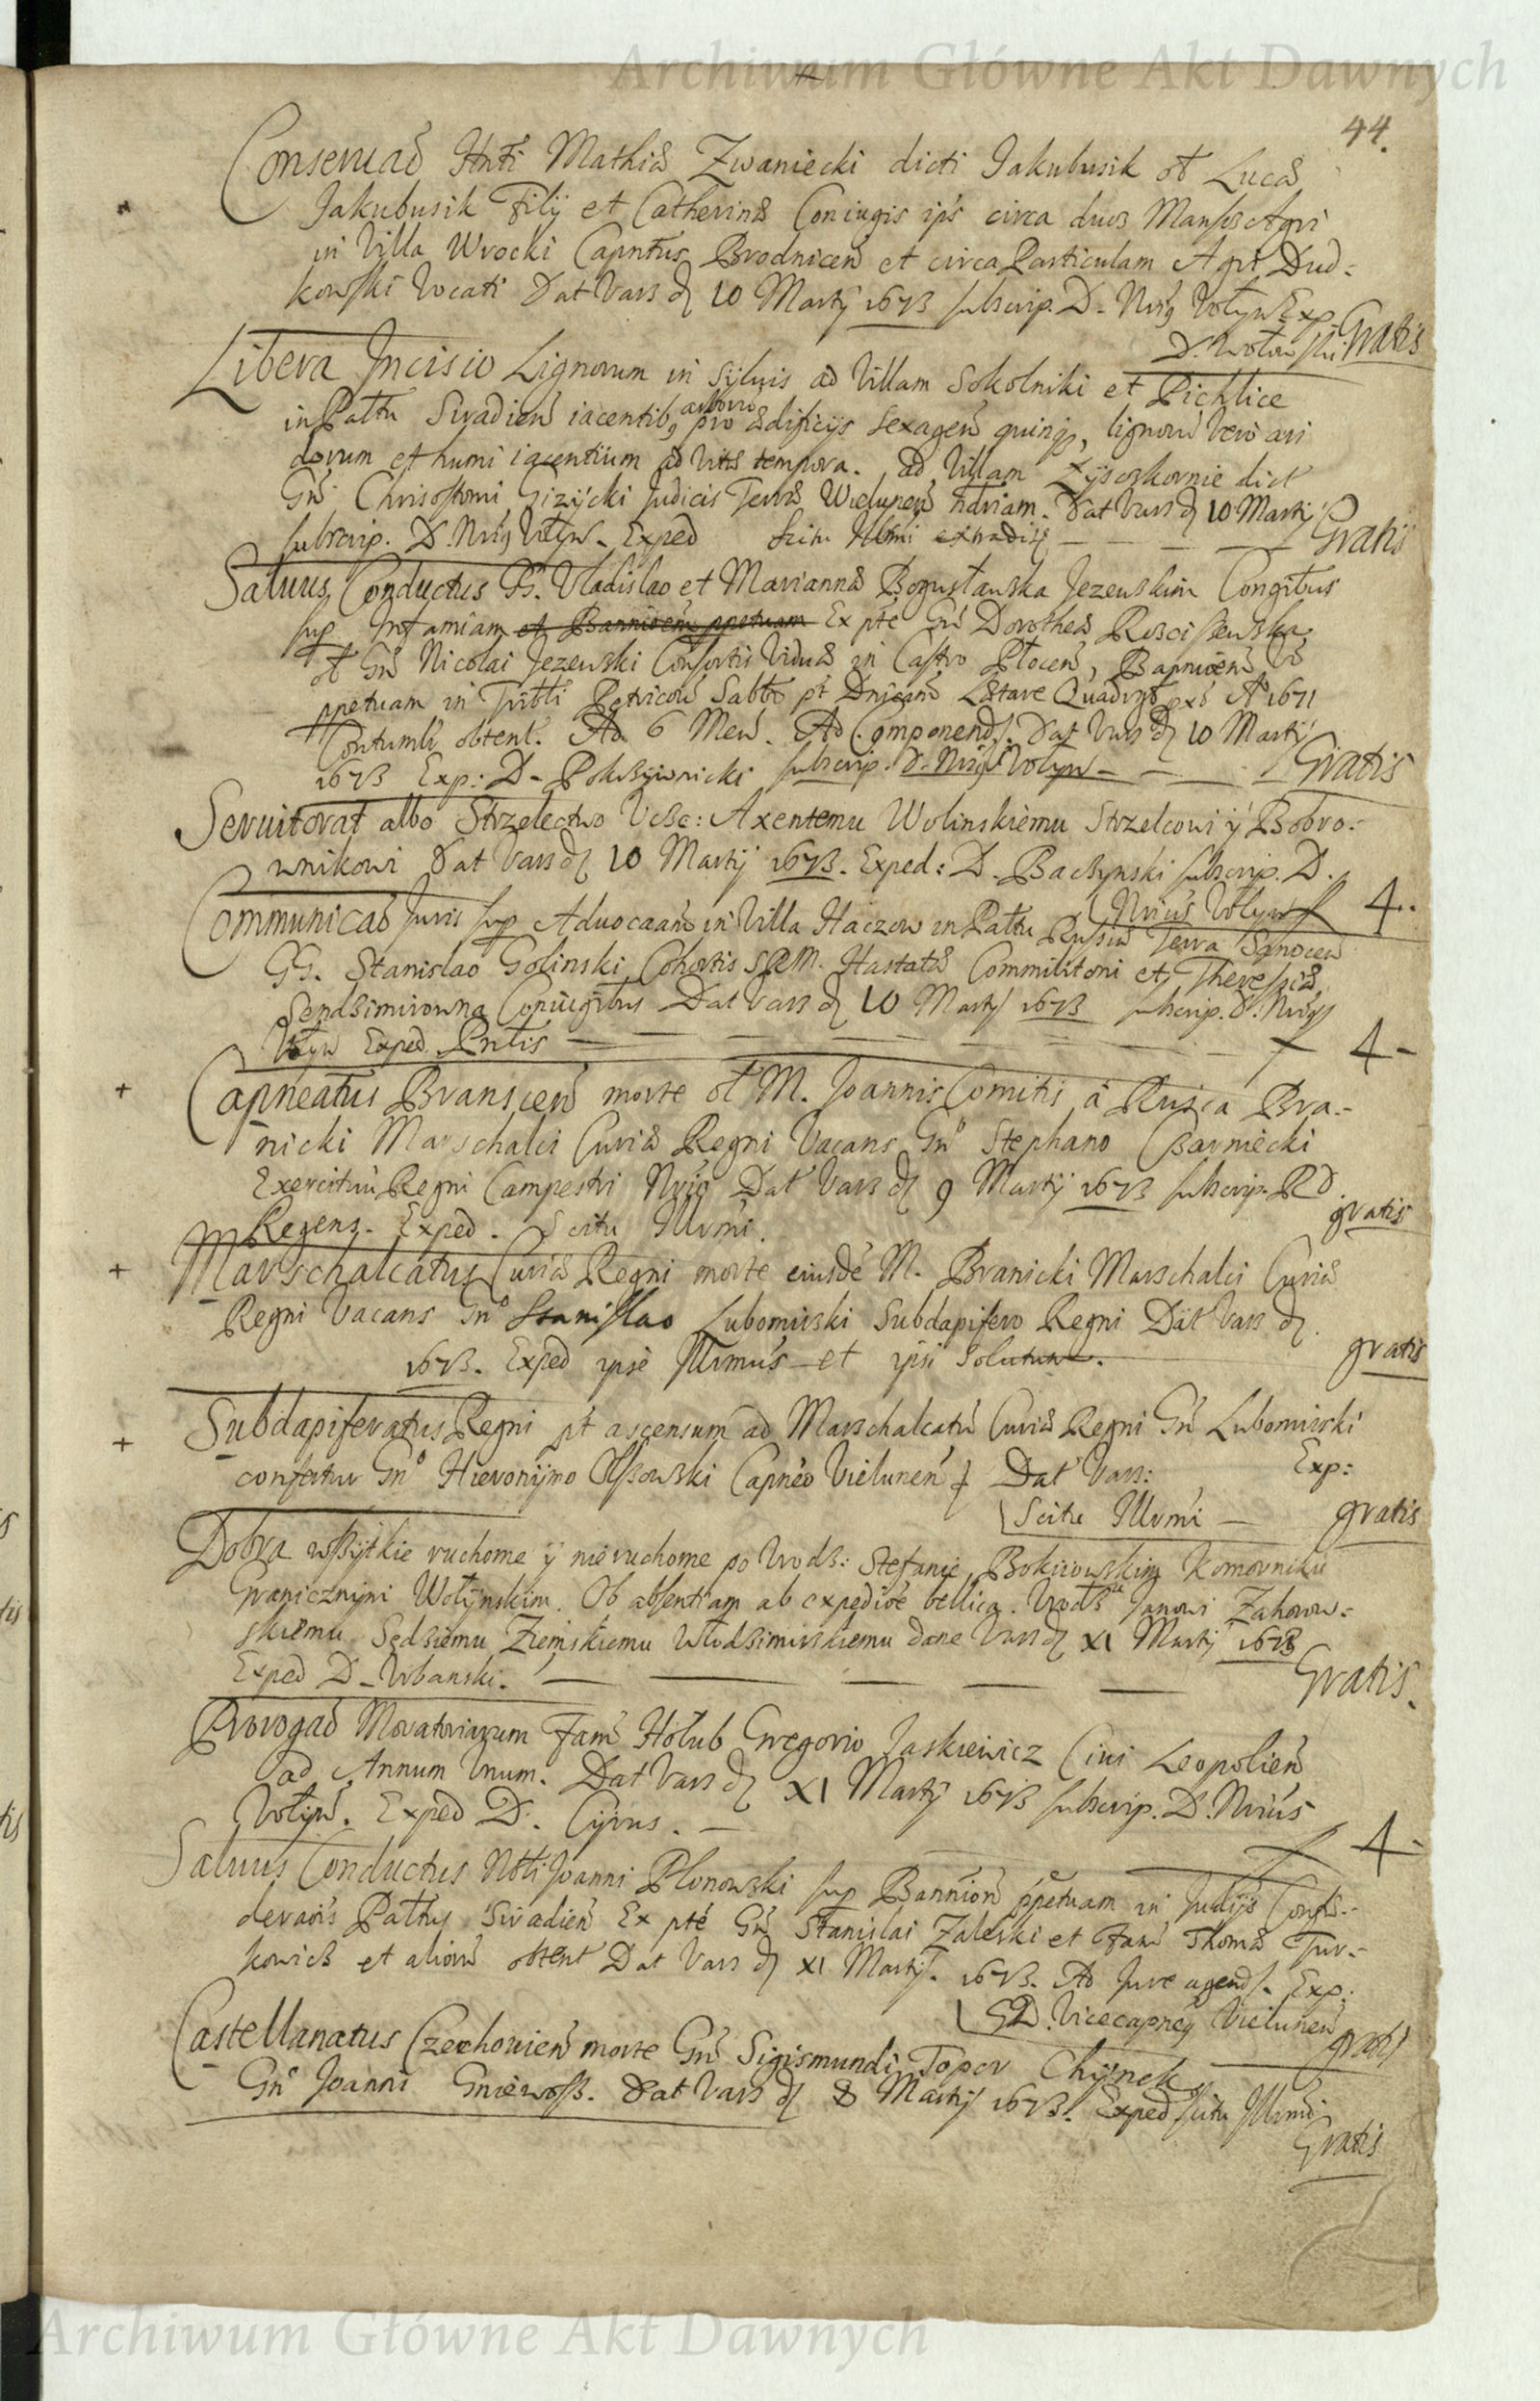 Archiwum Główne Akt Dawnych
44.
Conseruaõ Hnti Mathiæ Zwaniecki dicti Jakubusik et Lucæ
Jakubusik Filÿ et Catherinæ Coniugis ips circa duos Mansos Agri
in Villa Wrocki Capntus Brodniceñ et circa Particulam Agri Dud-
kowski Vocati Dat Vars d 10 Martÿ 1673 subscrip. D. Nrig Vołyn Exp
D. Wołow ski Gratis
Libera Incisio Lignorum in Syluis ad Villam Sokolniki et Pichlice
in Pałtu Siradień iacentib9 arborũ pro ædificÿs sexageń quinqz, lignorũ vero ari
dorum et humi iacentium ad vitæ tempora. ad Villam dict
Gñi Chrisostomi Giziÿcki Judicis Terræ Wieluneñ hæriam. Dat Vars d 10 Martÿ
subscrip. D. Nrig Vołyn. Exped Scitu Illmi Gratis
Saluus Conductus GG. Vladislao et Mariannæ Bogusławska Jezewskim Coniugibus
sup Infamiam et Bannioem ppetuam Ex pte Gñ Dorotheæ Rosciszewska
ot Gñ Nicolai Jezewski Consortis Viduæ in Castro Płoceñ, Bannioem Vo
ppetuam in Tribli Petricoũ Sabbo pt Dnicam Lætare Quadrag pxo A 1671
Contumli obtent. Ad 6 Meñ. Ad Componend. Dat Vars d 10 Martÿ
1673 Exp: D. Pokrzÿwnicki subscrip. D. Nrig Vołyn Gratis
Seruitorat albo Strzelectwo Ucz: Axentemu Wolinskiemu Strzelcowi ÿ Bobro-
wnikowi Dat Vars d 10 Martÿ 1673. Exped: D. Baczynski subscrip. D.
Nrius Vołyn f 4.
Communicaõ Juris sup Aduocaam in Villa Haczow in Pałtu Russiæ Terra Sanoceñ
GG. Stanislao Golinski Cohortis SRM. Hastatæ Commilitoni et Theressiæ
Sendzimirowna Coniugibus Dat Vars d 10 Martÿ 1673 subscrip. D. Nrig
Vołyn Exped Pntis f 4
Capneatus Branśceñ morte ol M. Joannis Comitis à Ruśca Bra-
nicki Marschalci Curiæ Regni Vacans Gño Stephano Czarniecki
Exercituũ Regni Campestri Nrio Dat Vars d 9 Martÿ 1673 subscrip. RD
Regens. Exped. Scitu Illrmi. gratis
Marschalcatus Curiæ Regni morte eiusdé M. Branicki Marschalci Curiæ
Regni Vacans Gño Stanislao Lubomirski Subdapifero Regni Dat Vars d.
1673. Exped ipse Illrmus et ipsi Solutum. gratis
Subdapiferatus Regni pt ascensum ad Marschalcatũ Curiæ Regni Gñ Lubomirski
confertur Gño Hieronÿmo Olszowski Capneo Vieluneñ Dat Vars: Exp:
Scitu Illrmi gratis
Dobra wszÿtkie ruchome ÿ nieruchome po Urodz: Stefanie Bokiiowskim Komorniku
Granicznÿm Wołÿnskim. Ob absentiam ab expedióe bellica. Urodz Janowi Zahorow-
skiemu Sędziemu Ziemskiemu Włodzimirskiemu dane Vars d XI Martÿ 1673
Exped D. Urbanski. Gratis.
Prorogaõ Moratoriarum Fam Hołub Gregorio Jaskiewicz Ciui Leopolień
ad Annum Unum. Dat Vars d XI Martÿ 1673 subscrip. D. Nrius
Vołyñ. Exped D. Cÿrus. f 4
Saluus Conductus Nbli Joanni Plonowski sup Bannioñ ppetuam in Judiÿs Confæ-
deraois Pałtus Siradień Ex pté Gñ Stanislai Zaleski et Fam Thomæ Tur-
kowicz et alioru obtent Dat Vars d XI Martÿ. 1673. Ad Jure agend. Exp.
GD. Vicecapneg Vieluneñ gratis
Castellanatus Czechowień morte Gñ Sigismundi Topor Chÿnek
Gño Joanni Gniewosz. Dat Vars d 8 Martÿ 1673. Exped scitu Illrmi
Gratis
Archiwum Główne Akt Dawnych